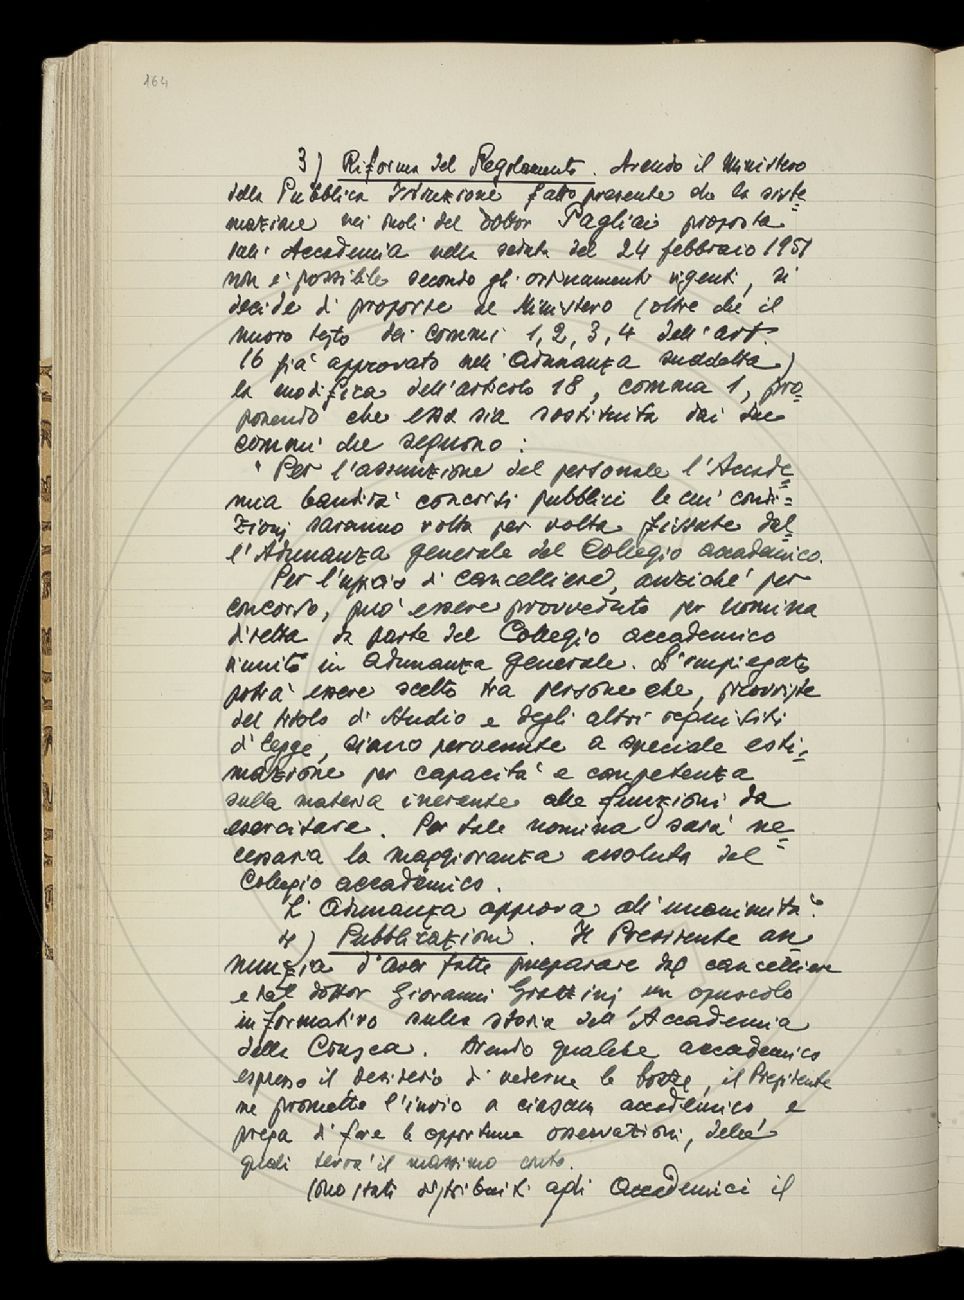 164
3) Riforma del Regolamento. Avendo il Ministero
della Pubblica Istruzione fatto presente che la siste=
mazione nei ruoli del dottor Pagliai proposta
dall'Accademia nella seduta del 24 febbraio 1951
non è possibile secondo gli ordinamenti vigenti, si
decide di proporre al Ministero (oltre che il
nuovo testo dei commi 1, 2, 3, 4 dell'art.
16 già approvato nell'Adunanza suddetta)
la modifica dell'articolo 18, comma 1, pro=
ponendo che esso sia sostituito dai due
commi che seguono:
"Per l'assunzione del personale l'Accade=
mia bandirà concorsi pubblici le cui condi=
zioni saranno volta per volta fissate dal=
l'Adunanza generale del Collegio accademico.
Per l'ufficio di cancelliere, anziché per
concorso, può essere provveduto per nomina
diretta da parte del Collegio accademico
riunito in adunanza generale. L'impiegato
potrà essere scelto tra persone che, provviste
del titolo di studio e degli altri requisiti
di legge, siano pervenute a speciale esti=
mazione per capacità e competenza
sulla materia inerente alle funzioni da
esercitare. Per tale nomina sarà ne=
cessaria la maggioranza assoluta del
Collegio accademico.
L'Adunanza approva all'unanimità."
4) Pubblicazioni. Il Presidente an=
nunzia d'aver fatto preparare dal cancelliere
e dal dottor Giovanni Grazzini un opuscolo
informativo sulla storia dell'Accademia
della Crusca. Avendo qualche accademico
espresso il desiderio di vederne le bozze, il Presidente
ne promette l'invio a ciascun accademico, e
prega di fare le opportune osservazioni, delle
quali terrà il massimo conto.
Sono stati distribuiti agli Accademici il